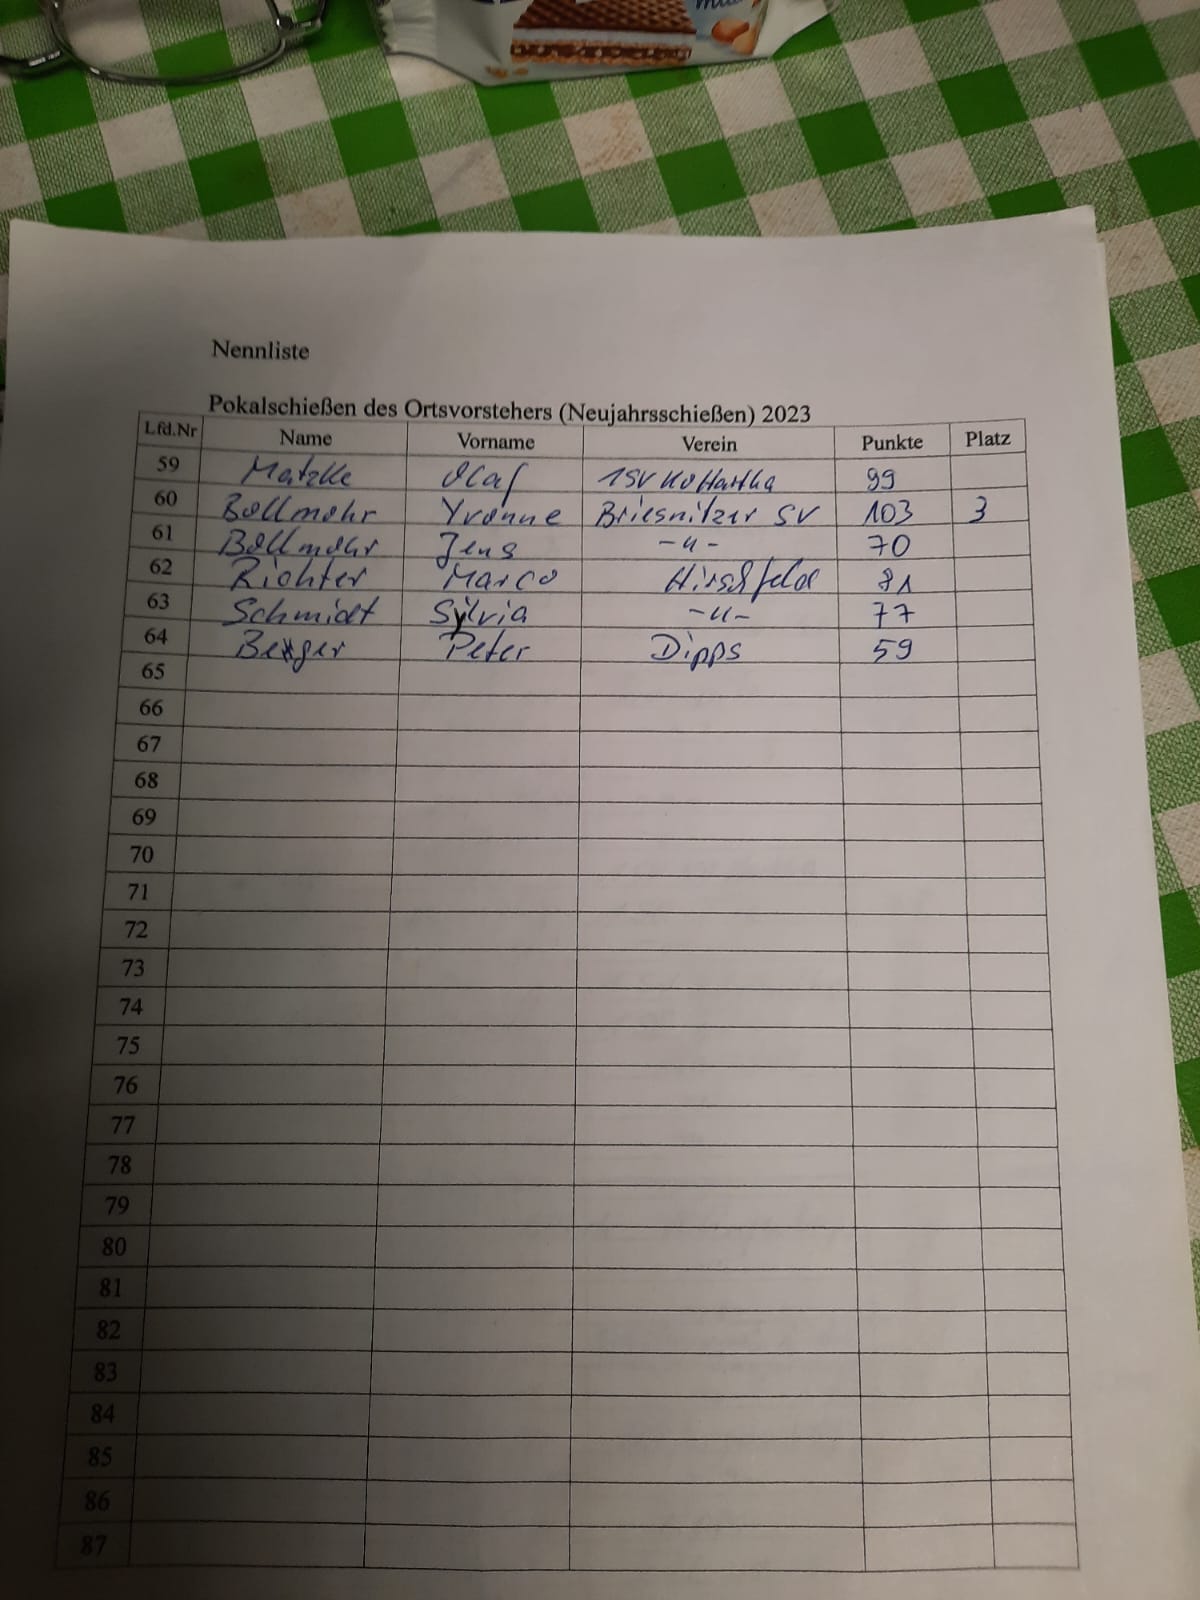 Nennliste
Pokalschießen des Ortsvorstehers (Neujahrsschießen) 2023
Lfd.Nr Name Vorname Verein Punkte Platz
59 Matzke Olaf 1SV KoHartha 99
60 Bollmohr Yvonne Briesnitzer SV 103 3
61 Bollmohr Jens -"- 70
62 Richter Marco Hirschfeld 81
63 Schmidt Sylvia -"- 77
64 Berger Peter Dipps 59
65
66
67
68
69
70
71
72
73
74
75
76
77
78
79
80
81
82
83
84
85
86
87